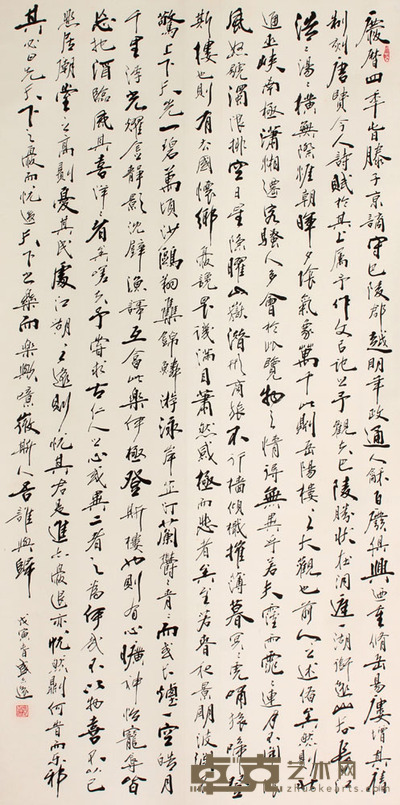 慶曆四年春滕子京謫守巴陵郡越明年政通人和百廢具興迺重脩岳陽樓增其舊
制刻唐賢今人詩賦於其上屬予作文以記之予觀夫巴陵勝狀在洞庭一湖銜遠山吞長江
浩浩湯湯橫無際涯朝暉夕陰氣象萬千此則岳陽樓之大觀也前人之述備矣然則北
通巫峽南極瀟湘遷客騷人多會於此覽物之情得無異乎若夫霪雨霏霏連月不開陰
風怒號濁浪排空日星隱曜山嶽潛形商旅不行檣傾檝摧薄暮冥冥虎嘯猿啼登
斯樓也則有去國懷鄉憂讒畏譏滿目蕭然感極而悲者矣至若春和景明波瀾不
驚上下天光一碧萬頃沙鷗翔集錦鱗游泳岸芷汀蘭鬱鬱青青而或長煙一空皓月
千里浮光耀金靜影沈璧漁謌互答此樂何極登斯樓也則有心曠神怡寵辱皆
忘把酒臨風其喜洋洋者矣嗟夫予嘗求古仁人之心或異二者之為何哉不以物喜不以己
悲居廟堂之高則憂其民處江湖之遠則憂其君是進亦憂退亦憂然則何時而樂耶
其必曰先天下之憂而憂後天下之樂而樂歟噫微斯人吾誰與歸
戊寅春盛
卓克艺术网